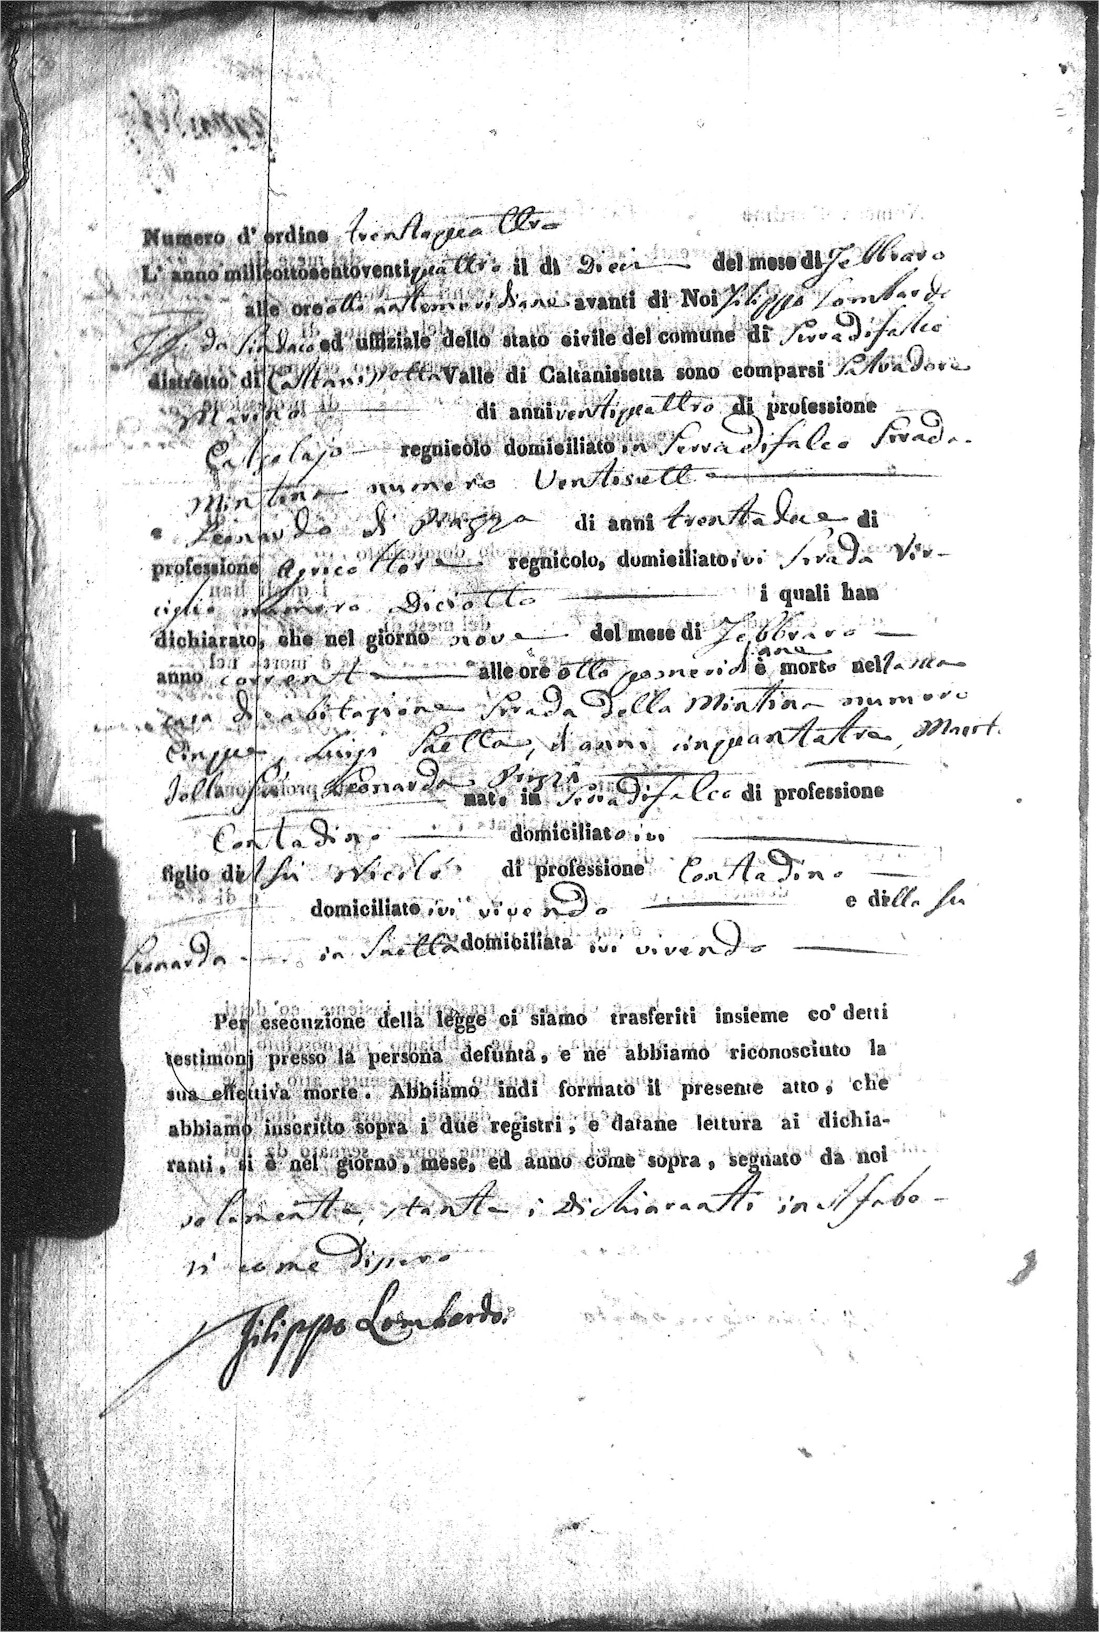 Numero d' ordine trentaquattro
L' anno milleottocentoventiquattro il di Dieci del mese di Febbraro
alle ore otto antemeridiane avanti di Noi Filippo Lombardo
da Sindaco ed uffiziale dello stato civile del comune di Serradifalco
distretto di Caltanissetta Valle di Caltanissetta sono comparsi Salvadore
Marino di anni ventiquattro di professione
Calzolajo regnicolo domiciliato in Serradifalco Strada
Mintina numero Ventisette
e Leonardo di Piazza di anni trentadue di
professione Agricoltore regnicolo, domiciliato ivi Strada Vir-
giglio numero Diciotto i quali han
dichiarato, che nel giorno nove del mese di Febbraro
anno corrente alle ore otto pomeridiane è morto nella sua
casa di abitazione Strada della Mintina numero
Cinque, Luigi Saetta, d'anni cinquantatre, Marit.
della fu Leonarda nato in Serradifalco di professione
Contadino domiciliato ivi
figlio del fu Nicolò di professione Contadino
domiciliato ivi vivendo e della fu
Leonarda in Saetta domiciliata ivi vivendo
Per esecuzione della legge ci siamo trasferiti insieme co' detti
testimonj presso la persona defunta, e ne abbiamo riconosciuto la
sua effettiva morte. Abbiamo indi formato il presente atto, che
abbiamo inscritto sopra i due registri, e datane lettura ai dichia-
ranti, si è nel giorno, mese, ed anno come sopra, segnato da noi
solamente, stante i Dichiaranti inalfabe-
ti come dissero
Filippo Lombardo